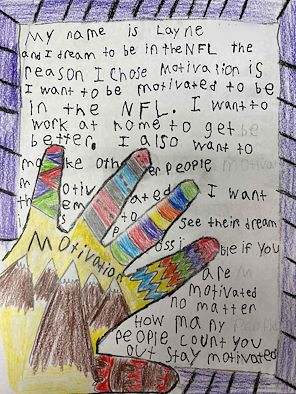 My name is Layne
and I dream to be in the NFL the
reason I chose motivation is
I want to be motivated to be
in the NFL. I want to
work at home to get be
better. I also want to
make other people
motivated I want
them to see their dream
is possible if you
are
motivated
no matter
How many people
people count you
out stay motivated
Motivation